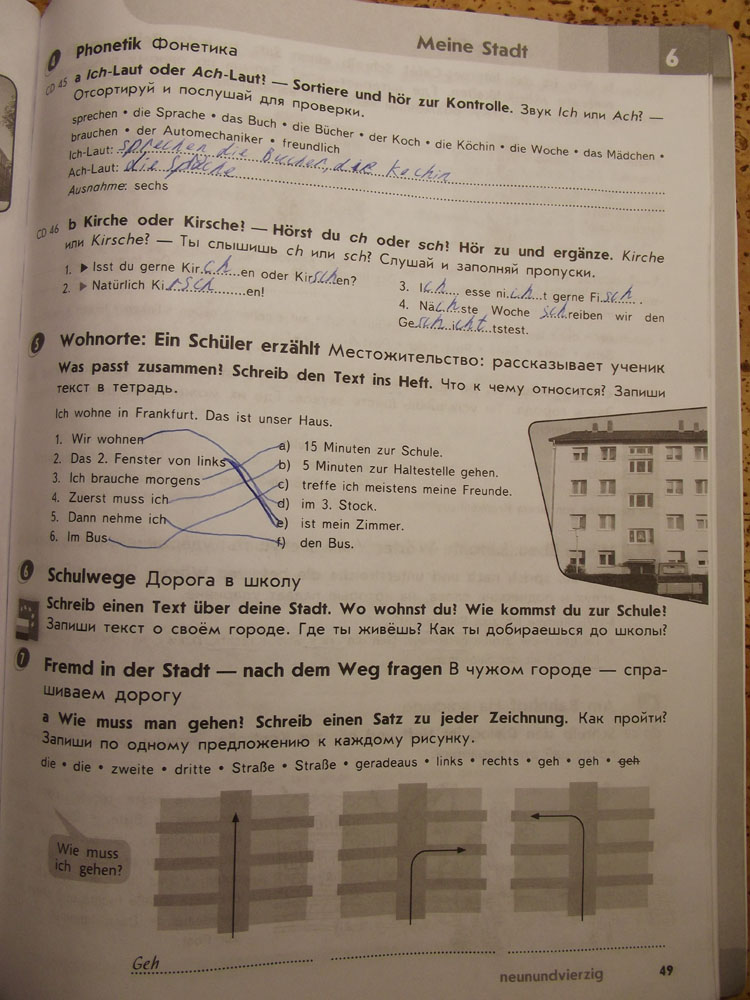 Meine Stadt
6
4 Phonetik Фонетика
CD 45 a Ich-Laut oder Ach-Laut? — Sortiere und hör zur Kontrolle. Звук Ich или Ach? —
Отсортируй и послушай для проверки.
sprechen • die Sprache • das Buch • die Bücher • der Koch • die Köchin • die Woche • das Mädchen •
brauchen • der Automechaniker • freundlich
Ich-Laut: sprechen die Bücher, die Kochin
Ach-Laut: die Sprache
Ausnahme: sechs
CD 46 b Kirche oder Kirsche? — Hörst du ch oder sch? Hör zu und ergänze. Kirche
или Kirsche? — Ты слышишь ch или sch? Слушай и заполняй пропуски.
1. ▶ Isst du gerne Kir ch en oder Kir sch en?
2. ▶ Natürlich Ki rsch en!
3. I ch esse ni ch t gerne Fi sch .
4. Nä ch ste Woche sch reiben wir den
Ge sch icht tstest.
5 Wohnorte: Ein Schüler erzählt Местожительство: рассказывает ученик
Was passt zusammen? Schreib den Text ins Heft. Что к чему относится? Запиши
текст в тетрадь.
Ich wohne in Frankfurt. Das ist unser Haus.
1. Wir wohnen
2. Das 2. Fenster von links
3. Ich brauche morgens
4. Zuerst muss ich
5. Dann nehme ich
6. Im Bus
a) 15 Minuten zur Schule.
b) 5 Minuten zur Haltestelle gehen.
c) treffe ich meistens meine Freunde.
d) im 3. Stock.
e) ist mein Zimmer.
f) den Bus.
6 Schulwege Дорога в школу
Schreib einen Text über deine Stadt. Wo wohnst du? Wie kommst du zur Schule?
Запиши текст о своём городе. Где ты живёшь? Как ты добираешься до школы?
7 Fremd in der Stadt — nach dem Weg fragen В чужом городе — спра-
шиваем дорогу
a Wie muss man gehen? Schreib einen Satz zu jeder Zeichnung. Как пройти?
Запиши по одному предложению к каждому рисунку.
die • die • zweite • dritte • Straße • Straße • geradeaus • links • rechts • geh • geh • geh
Wie muss
ich gehen?
Geh
neunundvierzig
49